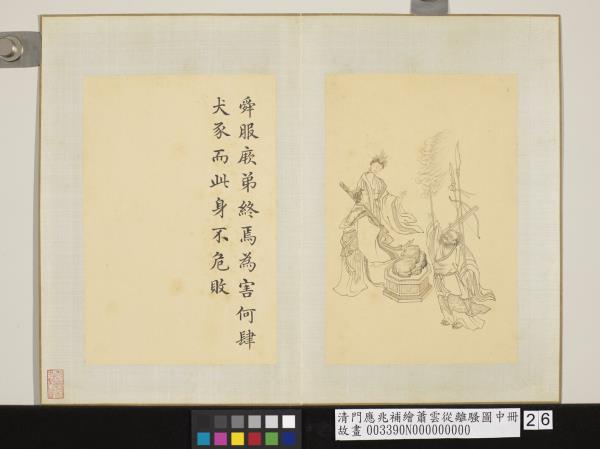 舜服厥弟終焉為害何肆
犬豕而此身不危敗
清門應兆補繪蕭雲從離騷圖中冊
故畫 003390N000000000
26